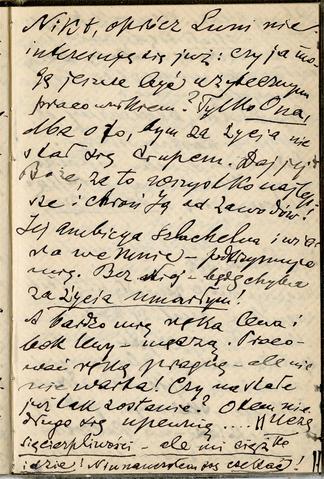 Nikt, oprócz Luni nie
interesuje się już: czy ja mo-
gę jeszcze być użytecznym
pracownikiem? Tylko Ona,
dba o to, bym za życia nie
stał się trupem. Daj jej
Boże, za to wszystko najlep-
sze i chroń Ją od zawodów!
Jej ambicja szlachetna i wia-
ra we mnie – podtrzymuje
mię. Bez niej – będę chyba
za życia umarłym!
A bardzo mię ręka lewa i
bok lewy – męczą. Praco-
wać ręką pragnę – ale nie
nie warta! Czy na stałe
już tak zostanie? O tem nie-
długo się upewnię.... Uczę
się cierpliwości – ale mi ciężko
idzie! Nie nauczyłem się czekać!